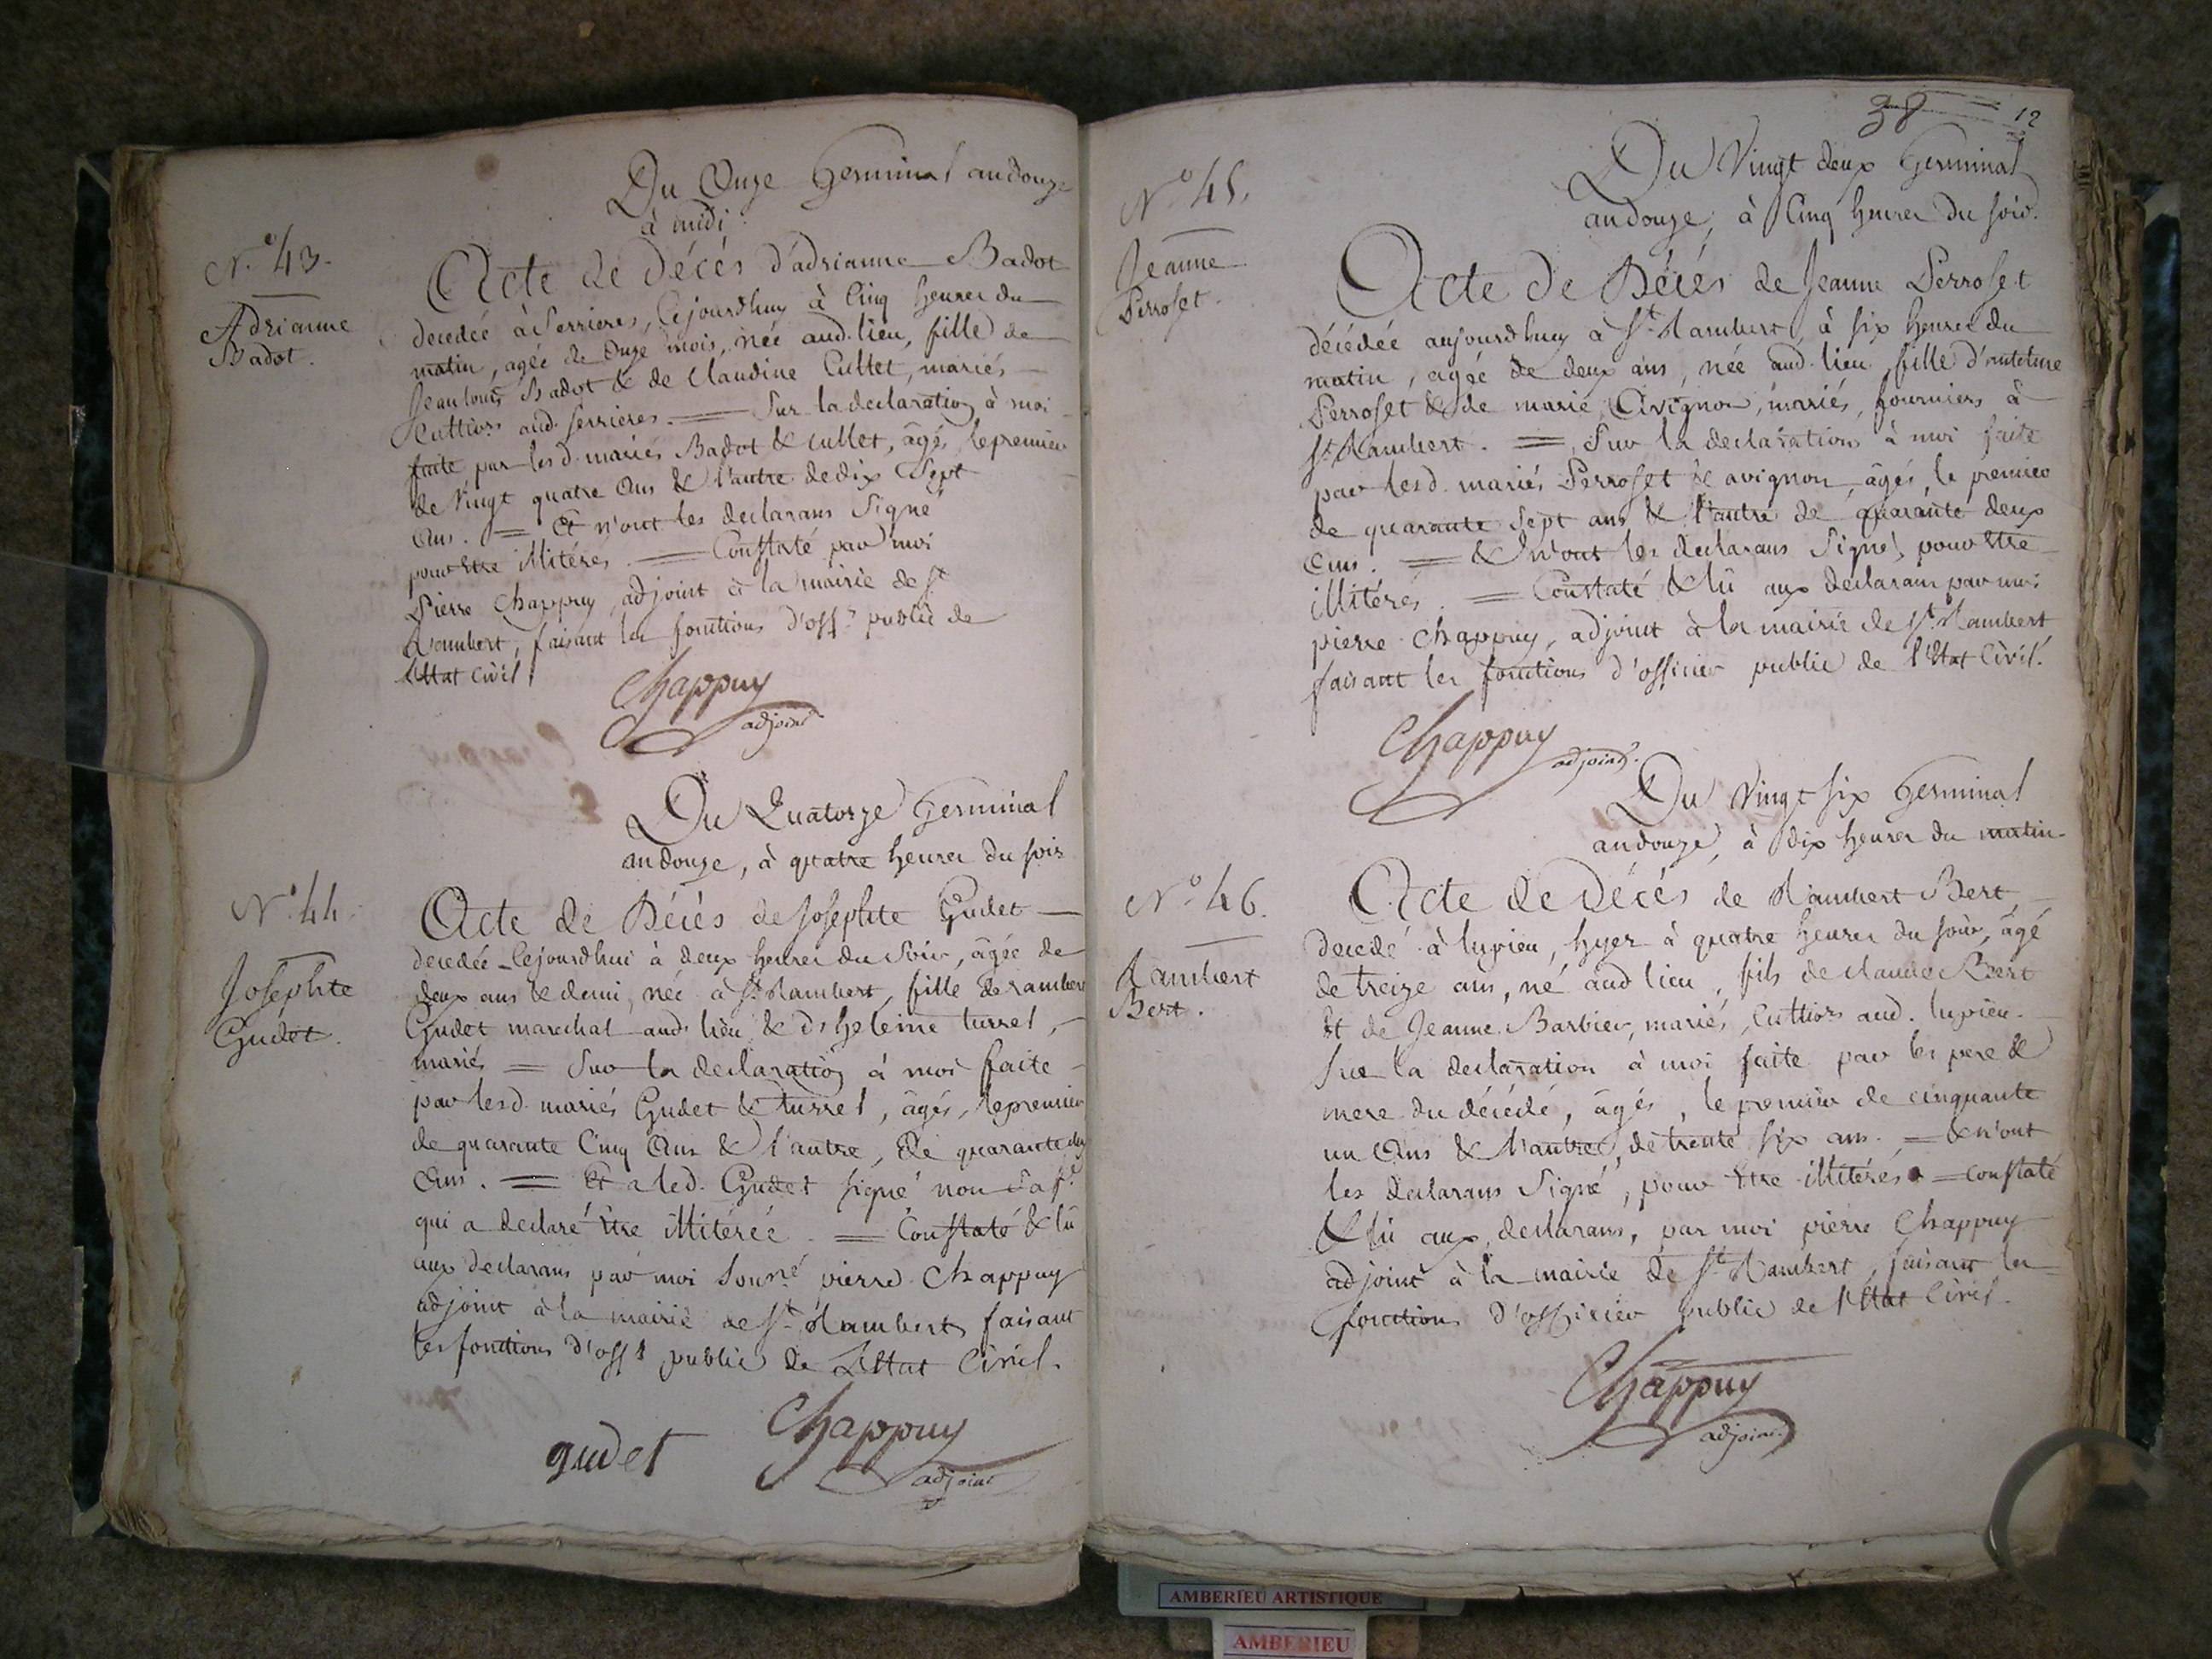 Du Onze Germinal an douze
à midi
N.º 43.
Adrianne
Badot.
Acte de Décès d'adrianne Badot
decedée à Serrieres, Cejourdhuy à Cinq heures du
matin, agée de Onze mois, née aud. lieu, fille de
Jean louis Badot & de Claudine Cullet, mariés
Cultiors aud. Serrieres. = Sur la declaration à moi
faite par lesd. mariés Badot & cullet, âgés, le premier
de Vingt quatre Ans & l'autre de dix Sept
Ans. = Et n'ont les declarans Signé
pour être illitérés. = Constaté par moi
Pierre Chappuy, adjoint à la mairie de St.
Rambert, faisant les fonctions d'offr. public de
l'Etat Civil
Chappuy
adjoint
Du Quatorze Germinal
an douze, à quatre heures du soir
N.º 44.
Josephte
Gudet.
Acte de Décès de Josephte Gudet
decedée Cejourdhui à deux heures du Soir, âgée de
deux ans & demi, née à St. Rambert, fille de rambert
Gudet marechal aud. lieu & d'heleine turrel,
mariés = Sur la declaration à moi faite
par lesd. mariés Gudet & turrel, âgés, le premier
de quarante Cinq Ans & l'autre, de quarante
Ans. = Et a led. Gudet signé non sa fe.
qui a declaré être illitérée. = Constaté & lû
aux declarans par moi Sousné. pierre Chappuy
adjoint à la mairie de St. Rambert, faisant
les fonctions d'offr. public de L'Etat Civil.
gudet
Chappuy
adjoint
38
12
Du Vingt deux Germinal
an douze, à Cinq heures du soir.
N.º 45.
Jeanne
Perroset.
Acte de Décès de Jeanne Perroset
décédée aujourdhuy à St. Rambert, à six heures du
matin, âgée de deux ans, née aud. lieu, fille d'antoine
Perroset & de marie Avignon, mariés, fourniers à
St. Rambert. = Sur la declaration à moi faite
par lesd. mariés Perroset & avignon, âgés, le premier
de quarante Sept ans & l'autre de quarante deux
Ans. = & n'ont les declarans Signé, pour être
illitérés. = Constaté & lû aux declarans par moi
pierre Chappuy, adjoint à la mairie de St. Rambert
faisant les fonctions d'officier public de l'Etat Civil.
Chappuy
adjoint.
Du Vingt six Germinal
an douze, à dix heures du matin
N.º 46.
Rambert
Bert.
Acte de Décès de Rambert Bert,
decedé à lupieu, hyer à quatre heures du soir, âgé
de treize ans, né aud. lieu, fils de claude Bert
et de Jeanne Barbier, mariés, Cultiors aud. lupieu.
Sur la declaration à moi faite par les pere &
mere du décédé, âgés, le premier de cinquante
un Ans & l'autre, de trente six ans. = & n'ont
les declarans Signé, pour être illitérés = constaté
& lû aux declarans, par moi pierre Chappuy
adjoint à la mairie de St. Rambert, faisant les
fonctions d'officier public de l'Etat Civil.
Chappuy
adjoint
AMBERIEU ARTISTIQUE
AMBERIEU